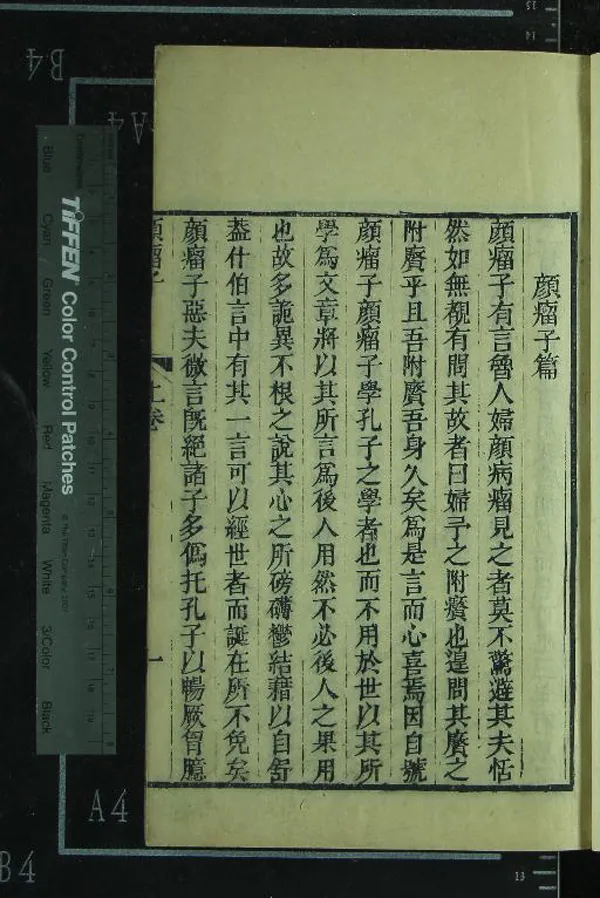 顏瘤子篇
顏瘤子有言魯人婦顏病瘤見之者莫不驚避其夫恬
然如無覩有問其故者曰婦予之附贅也遑問其贅之
附贅乎且吾附贅吾身久矣爲是言而心喜焉因自號
顏瘤子顏瘤子學孔子之學者也而不用於世以其所
學爲文章將以其所言爲後人用然不必後人之果用
也故多詭異不根之說其心之所磅礴鬱結藉以自舒
葢什伯言中有其一言可以經世者而誕在所不免矣
顏瘤子惡夫微言旣絕諸子多僞托孔子以暢厥胷臆
顏瘤子
上卷
一
TIFFEN Color Control Patches
© The Tiffen Company, 2007
Blue
Cyan
Green
Yellow
Red
Magenta
White
3/Color
Black
B4
A4
A4
B4
15
14
13